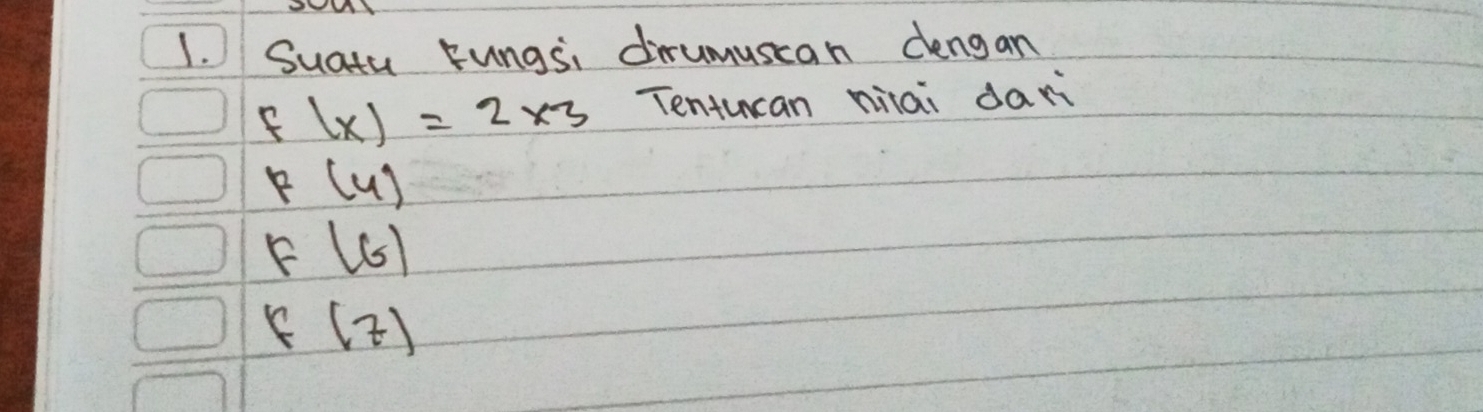 soal
1. Suatu Fungsi dirumuskan dengan
F (x) = 2x3 Tentukan nilai dari
F (4)
F (6)
F (7)